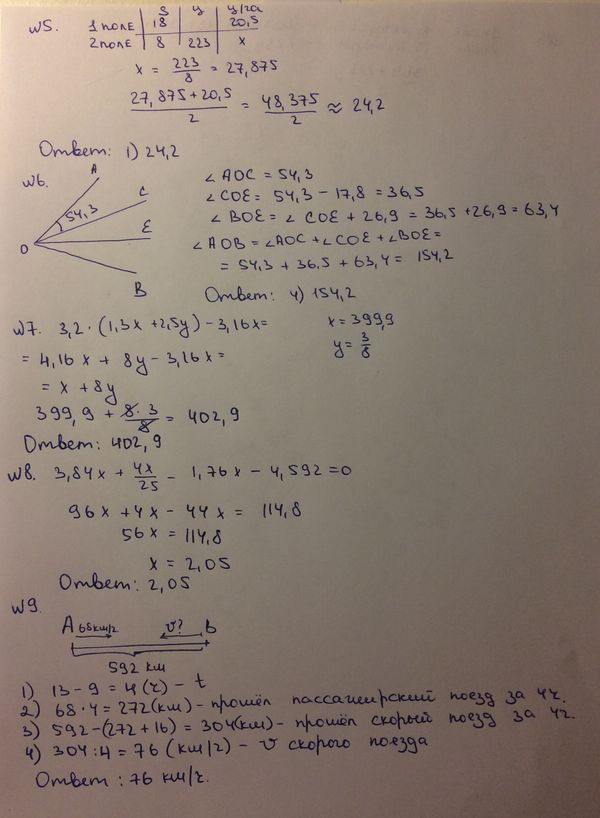 S y y/га
w5. 1 поле 18 20,5
2 поле 8 223 x
x = 223/8 = 27,875
(27,875 + 20,5)/2 = 48,375/2 ≈ 24,2
Ответ: 1) 24,2
w6. A C E B O 54,3
∠AOC = 54,3
∠COE = 54,3 - 17,8 = 36,5
∠BOE = ∠COE + 26,9 = 36,5 + 26,9 = 63,4
∠AOB = ∠AOC + ∠COE + ∠BOE =
= 54,3 + 36,5 + 63,4 = 154,2
Ответ: 4) 154,2
w7. 3,2 · (1,3x + 2,5y) - 3,16x = x = 399,9
= 4,16x + 8y - 3,16x = y = 3/8
= x + 8y
399,9 + 8·3/8 = 402,9
Ответ: 402,9
w8. 3,84x + 4x/25 - 1,76x - 4,592 = 0
96x + 4x - 44x = 114,8
56x = 114,8
x = 2,05
Ответ: 2,05
w9.
A 68км/ч v? B
592 км
1) 13 - 9 = 4 (ч) - t
2) 68 · 4 = 272 (км) - прошёл пассажирский поезд за 4ч.
3) 592 - (272 + 16) = 304 (км) - прошёл скорый поезд за 4ч.
4) 304 : 4 = 76 (км/ч) - v скорого поезда
Ответ: 76 км/ч.